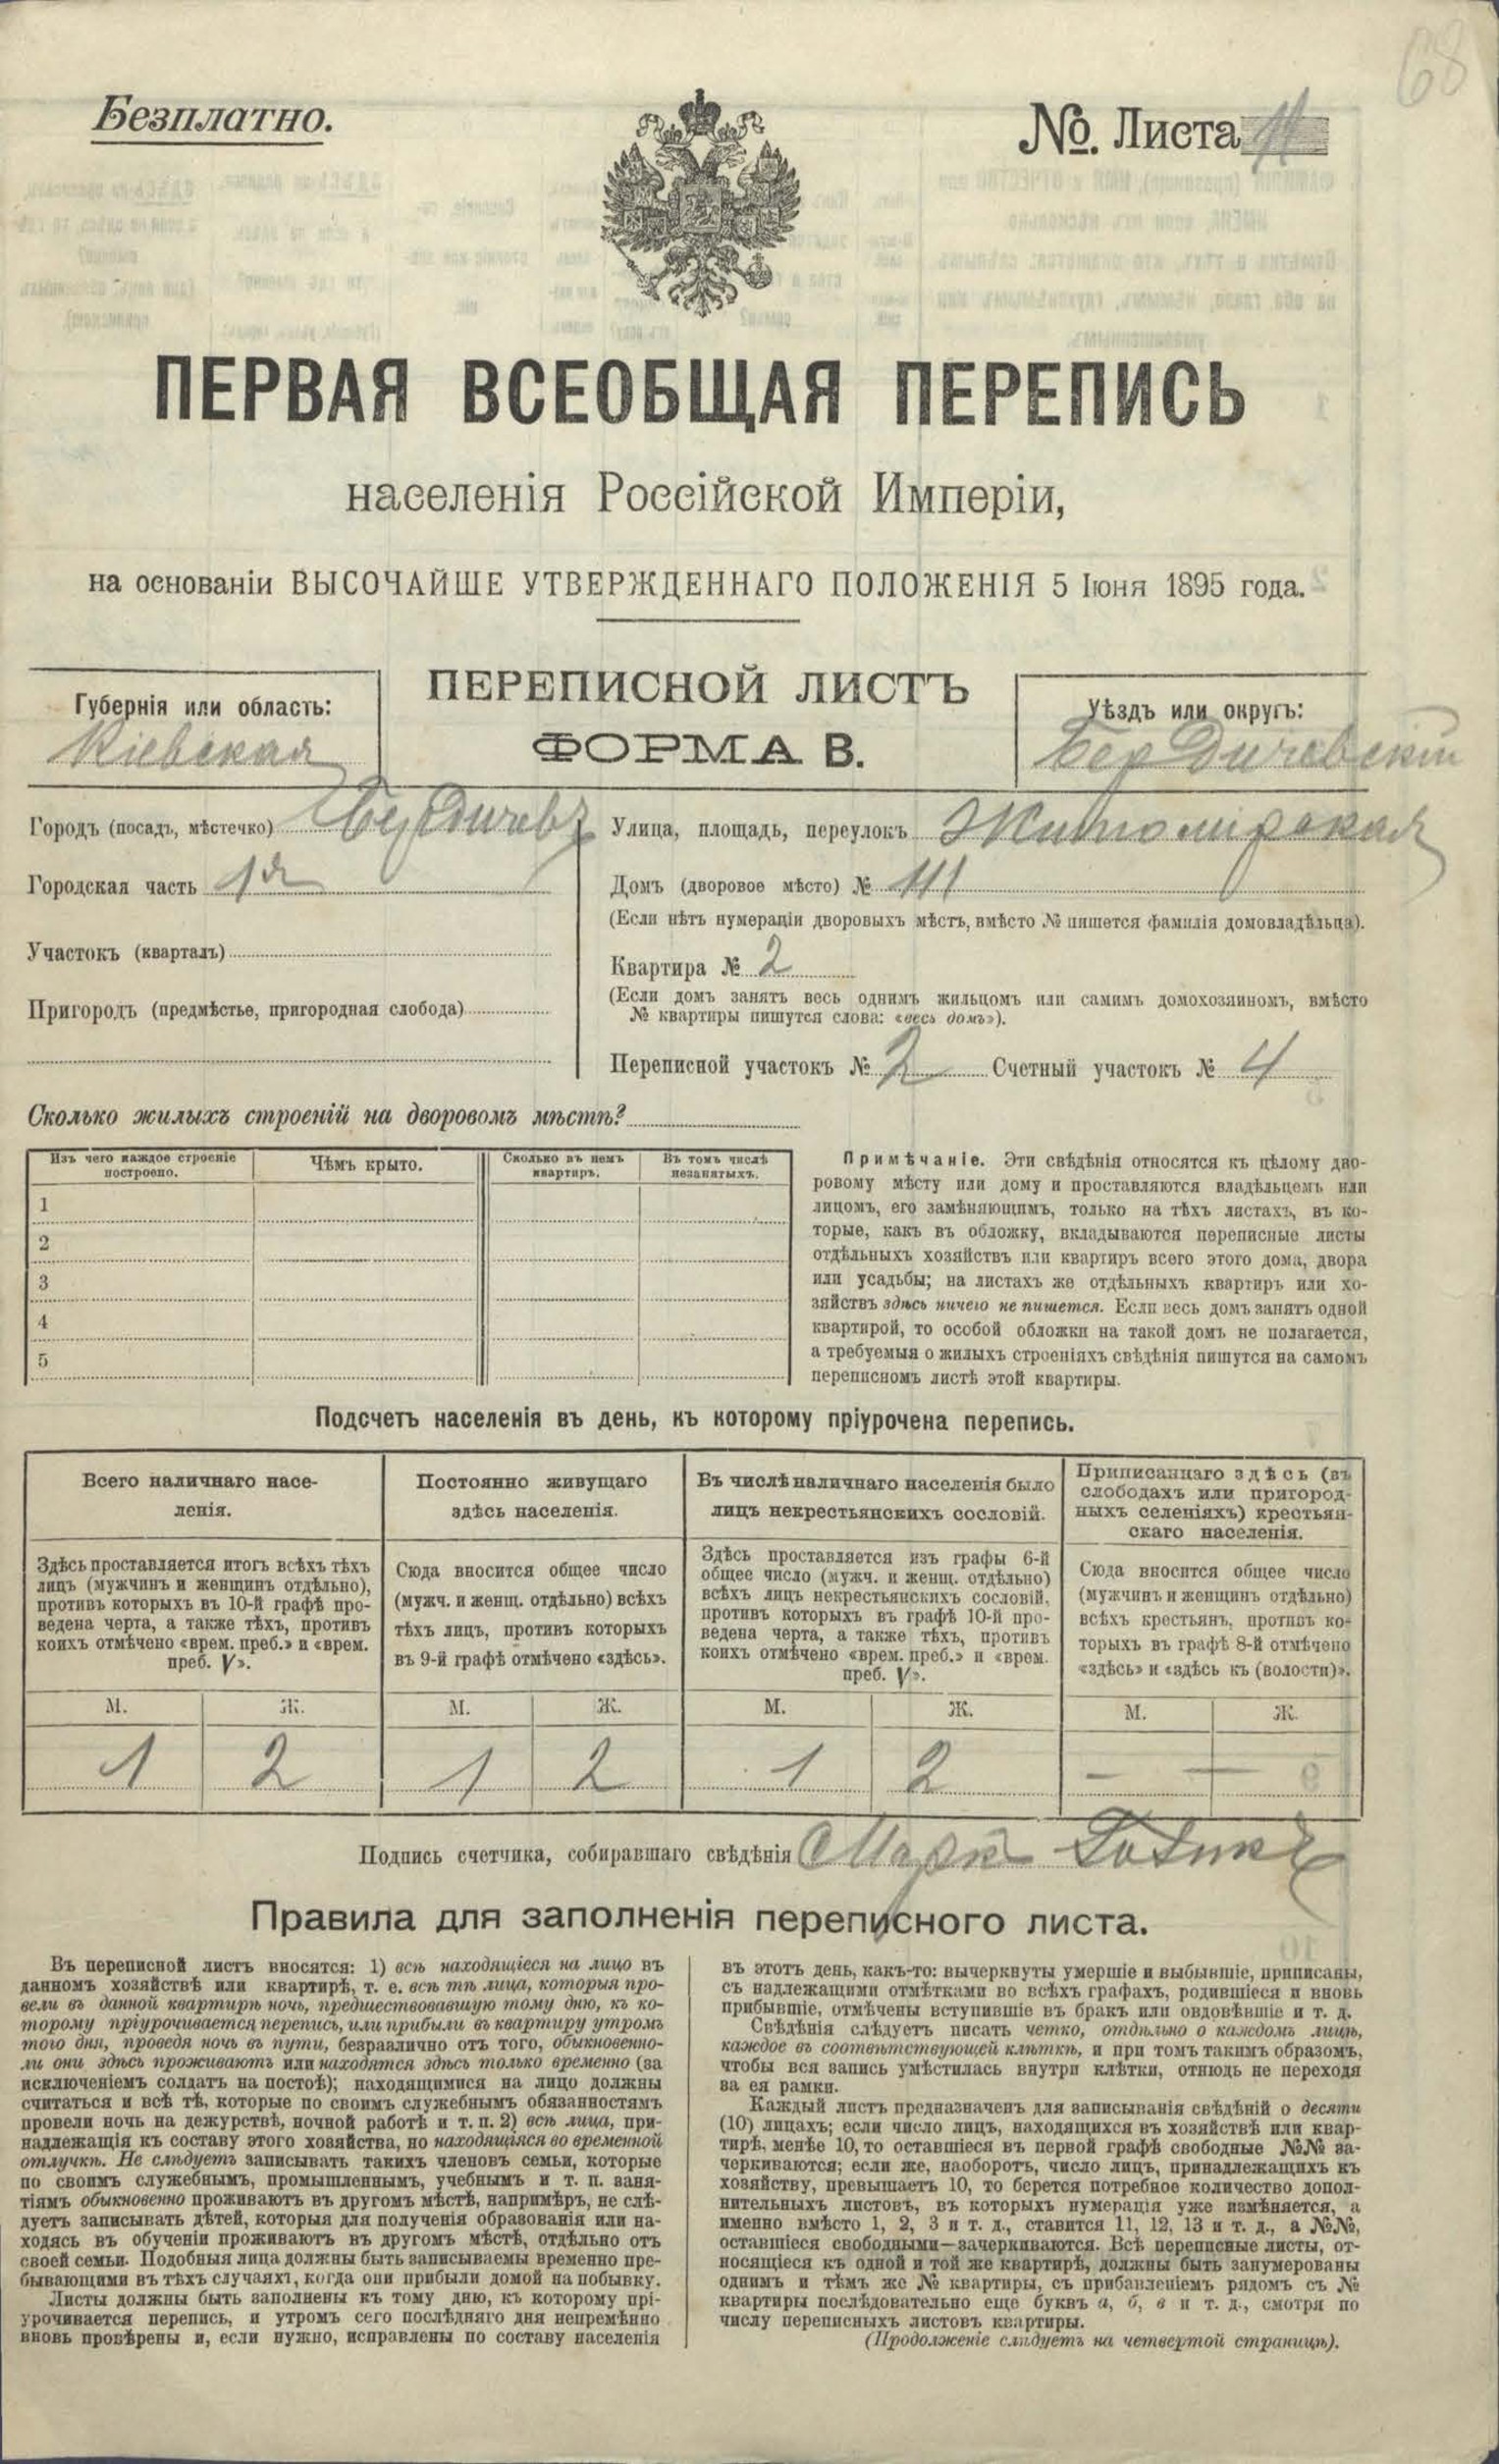 68
Безплатно.
№. Листа 11
ПЕРВАЯ ВСЕОБЩАЯ ПЕРЕПИСЬ
населенія Россійской Имперіи,
на основаніи ВЫСОЧАЙШЕ УТВЕРЖДЕННАГО ПОЛОЖЕНІЯ 5 Іюня 1895 года.
ПЕРЕПИСНОЙ ЛИСТЪ
ФОРМА В.
Губернія или область:
Кіевская
Уѣздъ или округъ:
Бердичевскій
Городъ (посадъ, мѣстечко) Бердичевъ
Городская часть 1я
Участокъ (кварталъ)
Пригородъ (предмѣстье, пригородная слобода)
Улица, площадь, переулокъ Житомирская
Домъ (дворовое мѣсто) № 111
(Если нѣтъ нумераціи дворовыхъ мѣстъ, вмѣсто № пишется фамилія домовладѣльца).
Квартира № 2
(Если домъ занятъ весь однимъ жильцомъ или самимъ домохозяиномъ, вмѣсто
№ квартиры пишутся слова: «весь домъ»).
Переписной участокъ № 2 Счетный участокъ № 4
Сколько жилыхъ строеній на дворовомъ мѣстѣ?
Изъ чего каждое строеніе
построено.
Чѣмъ крыто.
Сколько въ немъ
квартиръ.
Въ томъ числѣ
незанятыхъ.
1
2
3
4
5
Примѣчаніе. Эти свѣдѣнія относятся къ цѣлому дво-
ровому мѣсту или дому и проставляются владѣльцемъ или
лицомъ, его замѣняющимъ, только на тѣхъ листахъ, въ ко-
торые, какъ въ обложку, вкладываются переписные листы
отдѣльныхъ хозяйствъ или квартиръ всего этого дома, двора
или усадьбы; на листахъ же отдѣльныхъ квартиръ или хо-
зяйствъ здѣсь ничего не пишется. Если весь домъ занятъ одной
квартирой, то особой обложки на такой домъ не полагается,
а требуемыя о жилыхъ строеніяхъ свѣдѣнія пишутся на самомъ
переписномъ листѣ этой квартиры.
Подсчетъ населенія въ день, къ которому пріурочена перепись.
Всего наличнаго насе-
ленія.
Здѣсь проставляется итогъ всѣхъ тѣхъ
лицъ (мужчинъ и женщинъ отдѣльно),
противъ которыхъ въ 10-й графѣ про-
ведена черта, а также тѣхъ, противъ
коихъ отмѣчено «врем. преб.» и «врем.
преб. V».
М. Ж.
1 2
Постоянно живущаго
здѣсь населенія.
Сюда вносится общее число
(мужч. и женщ. отдѣльно) всѣхъ
тѣхъ лицъ, противъ которыхъ
въ 9-й графѣ отмѣчено «здѣсь».
М. Ж.
1 2
Въ числѣ наличнаго населенія было
лицъ некрестьянскихъ сословій.
Здѣсь проставляется изъ графы 6-й
общее число (мужч. и женщ. отдѣльно)
всѣхъ лицъ некрестьянскихъ сословій,
противъ которыхъ въ графѣ 10-й про-
ведена черта, а также тѣхъ, противъ
коихъ отмѣчено «врем. преб.» и «врем.
преб. V».
М. Ж.
1 2
Приписаннаго здѣсь (въ
слободахъ или пригород-
ныхъ селеніяхъ) крестьян-
скаго населенія.
Сюда вносится общее число
(мужчинъ и женщинъ отдѣльно)
всѣхъ крестьянъ, противъ ко-
торыхъ въ графѣ 8-й отмѣчено
«здѣсь» и «здѣсь къ (волости)».
М. Ж.
— —
Подпись счетчика, собиравшаго свѣдѣнія Марк
Правила для заполненія переписного листа.
Въ переписной листъ вносятся: 1) всѣ находящіеся на лицо въ
данномъ хозяйствѣ или квартирѣ, т. е. всѣ тѣ лица, которыя про-
вели въ данной квартирѣ ночь, предшествовавшую тому дню, къ ко-
торому пріурочивается перепись, или прибыли въ квартиру утромъ
того дня, проведя ночь въ пути, безразлично отъ того, обыкновенно-
ли они здѣсь проживаютъ или находятся здѣсь только временно (за
исключеніемъ солдатъ на постоѣ); находящимися на лицо должны
считаться и всѣ тѣ, которые по своимъ служебнымъ обязанностямъ
провели ночь на дежурствѣ, ночной работѣ и т. п. 2) всѣ лица, при-
надлежащія къ составу этого хозяйства, но находящіяся во временной
отлучкѣ. Не слѣдуетъ записывать такихъ членовъ семьи, которые
по своимъ служебнымъ, промышленнымъ, учебнымъ и т. п. заня-
тіямъ обыкновенно проживаютъ въ другомъ мѣстѣ, напримѣръ, не слѣ-
дуетъ записывать дѣтей, которыя для полученія образованія или на-
ходясь въ обученіи проживаютъ въ другомъ мѣстѣ, отдѣльно отъ
своей семьи. Подобныя лица должны быть записываемы временно пре-
бывающими въ тѣхъ случаяхъ, когда они прибыли домой на побывку.
Листы должны быть заполнены къ тому дню, къ которому прі-
урочивается перепись, и утромъ сего послѣдняго дня непремѣнно
вновь провѣрены и, если нужно, исправлены по составу населенія
въ этотъ день, какъ-то: вычеркнуты умершіе и выбывшіе, приписаны,
съ надлежащими отмѣтками во всѣхъ графахъ, родившіеся и вновь
прибывшіе, отмѣчены вступившіе въ бракъ или овдовѣвшіе и т. д.
Свѣдѣнія слѣдуетъ писать четко, отдѣльно о каждомъ лицѣ,
каждое въ соотвѣтствующей клѣткѣ, и при томъ такимъ образомъ,
чтобы вся запись умѣстилась внутри клѣтки, отнюдь не переходя
за ея рамки.
Каждый листъ предназначенъ для записыванія свѣдѣній о десяти
(10) лицахъ; если число лицъ, находящихся въ хозяйствѣ или квар-
тирѣ, менѣе 10, то оставшіеся въ первой графѣ свободные №№ за-
черкиваются; если же, наоборотъ, число лицъ, принадлежащихъ къ
хозяйству, превышаетъ 10, то берется потребное количество допол-
нительныхъ листовъ, въ которыхъ нумерація уже измѣняется, а
именно вмѣсто 1, 2, 3 и т. д., ставится 11, 12, 13 и т. д., а №№,
оставшіеся свободными—зачеркиваются. Всѣ переписные листы, от-
носящіеся къ одной и той же квартирѣ, должны быть занумерованы
однимъ и тѣмъ же № квартиры, съ прибавленіемъ рядомъ съ №
квартиры послѣдовательно еще буквъ а, б, в и т. д., смотря по
числу переписныхъ листовъ квартиры.
(Продолженіе слѣдуетъ на четвертой страницѣ).